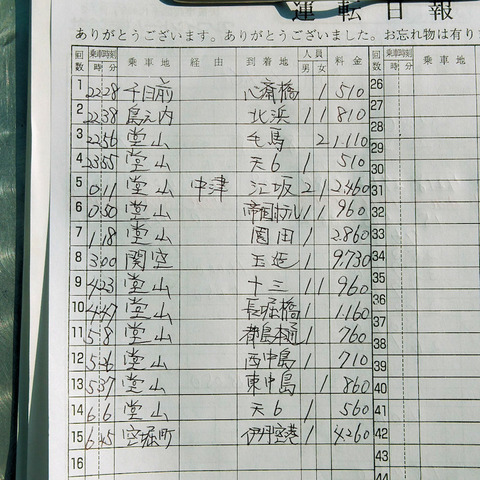 運転日報
ありがとうございます。ありがとうございました。お忘れ物は有り
回数 乗車時刻 時 分 乗車地 経由 到着地 人員 男 女 料金 回数 乗車時刻 時 分 乗車地
1 22 28 千日前 心斎橋 1 510 26
2 22 38 島之内 北浜 1 1 810 27
3 22 56 堂山 毛馬 2 1.110 28
4 23 55 堂山 天6 1 510 29
5 0 11 堂山 中津 江坂 2 1 2.460 31
6 0 50 堂山 帝国ホテル 1 1 960 32
7 1 18 堂山 園田 1 2.860 33
8 3 00 関空 玉造 1 9.730 34
9 4 23 堂山 十三 1 1 960 35
10 4 47 堂山 長堀橋 1 1.160 36
11 5 8 堂山 都島本通 1 760 37
12 5 26 堂山 西中島 1 710 38
13 5 37 堂山 東中島 1 860 39
14 6 6 堂山 天6 1 560 40
15 6 45 空堀町 伊丹空港 1 4.260 42
16
30
41
43
44